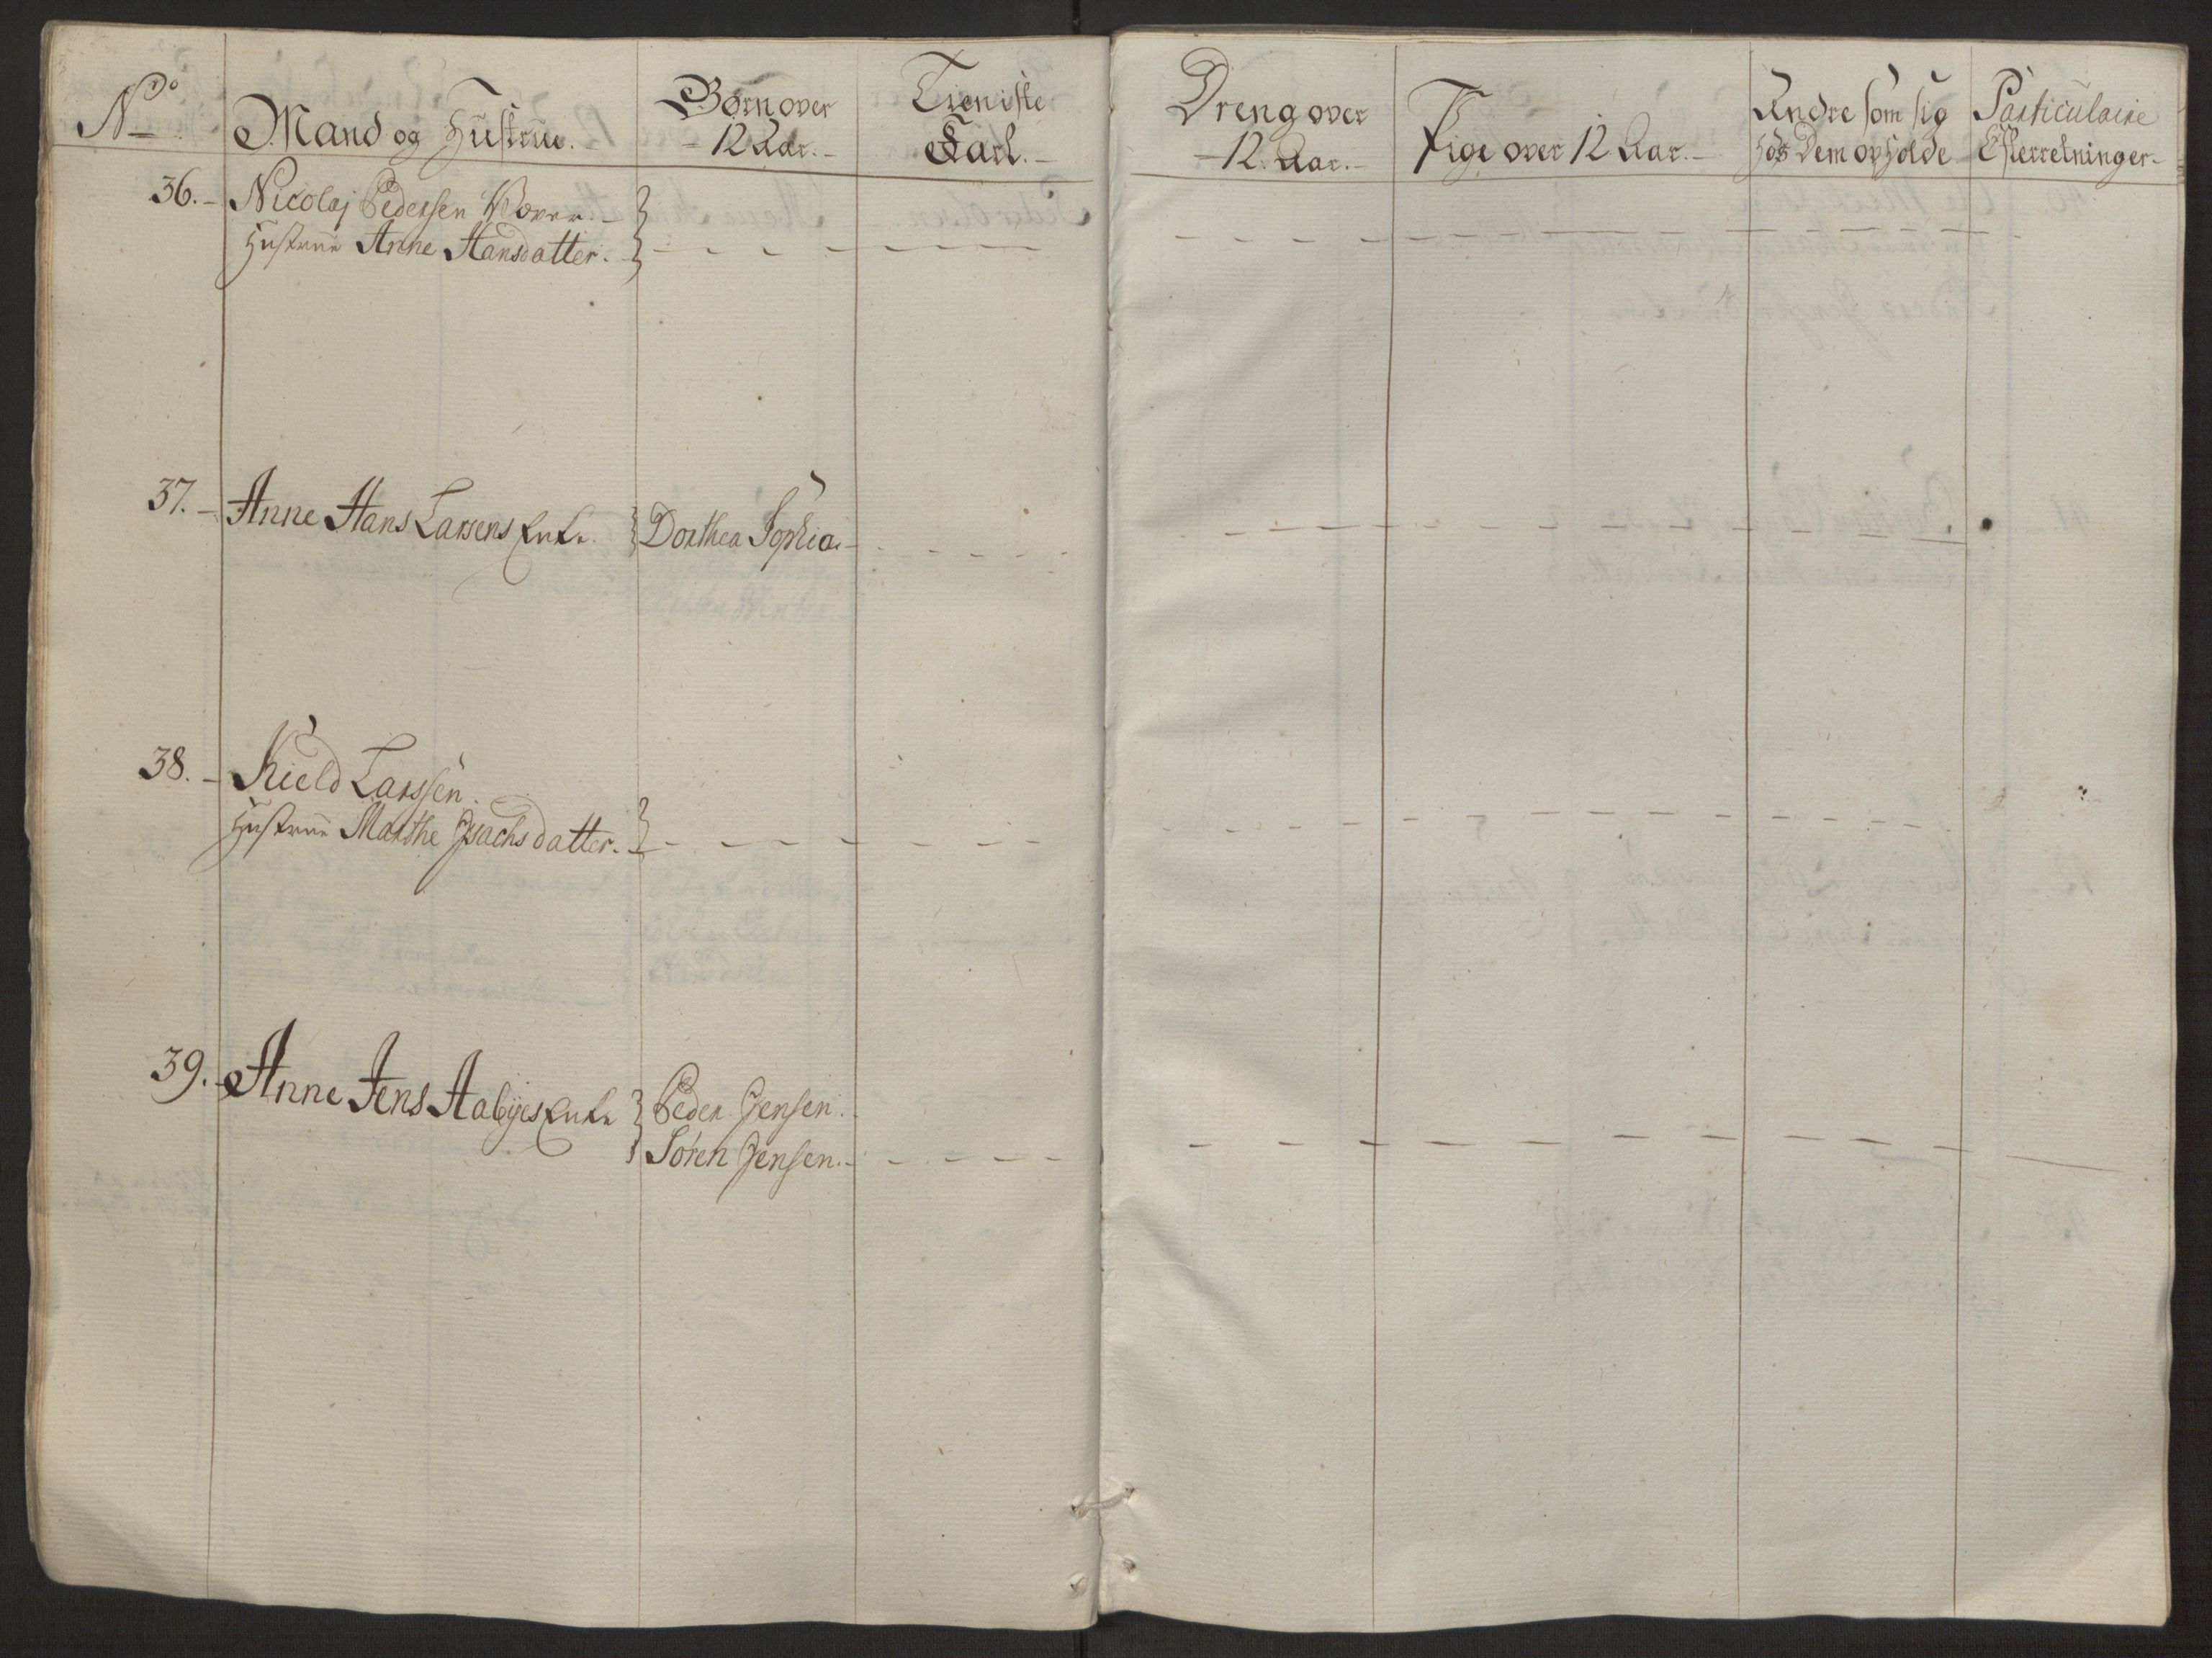 No
Mand og Hustrue.
Børn over
- 12 Aar. -
Tieniste
Karl. -
Dreng over
- 12. Aar. -
Pige over 12 Aar. -
Andre som sig
hos Dem opholde
Particulaire
Efterretninger -
36. - Nicolaj Pedersen Væver. -
Hustrue Anne Hansdatter. -
37. - Anne Hans Larsens Enke. Dorthea Sophia. -
38. - Kield Larssen.
Hustrue Marthe Isachsdatter. -
39. - Anne Jens Aabÿes Enke Peder Jensen.
Sören Jensen. -